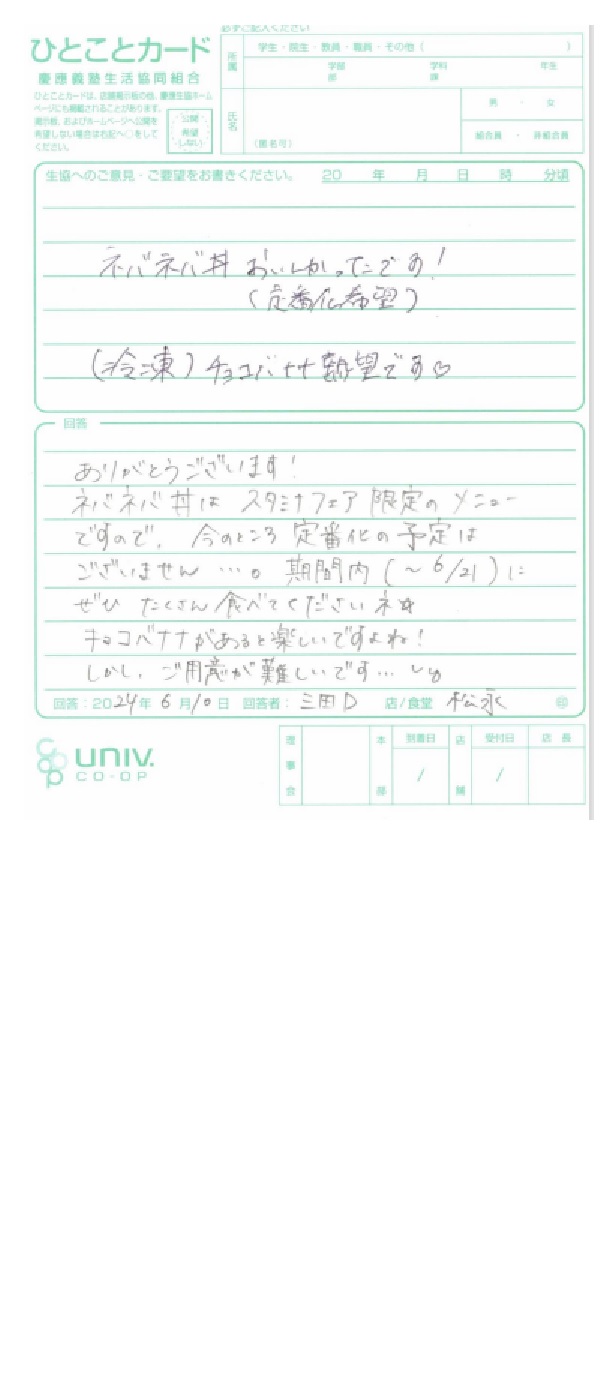 必ずご記入ください
ひとことカード
慶應義塾生活協同組合
ひとことカードは、店舗掲示板の他、慶應生協ホーム
ページにも掲載されることがあります。
掲示板、およびホームページへ公開を
希望しない場合は右記へ○をして
ください。
公開
希望
しない
所属
学生・院生・教員・職員・その他（　　）
学部 学科 年生
部 課
氏名
（匿名可）
男 ・ 女
組合員 ・ 非組合員
生協へのご意見・ご要望をお書きください。 20 年 月 日 時 分頃
ネバネバ丼 おいしかったです！
（定番化希望）
（冷凍）チョコバナナ熱望です♡
回答
ありがとうございます！
ネバネバ丼は スタミナフェア 限定の メニュー
ですので、今のところ 定番化の 予定は
ございません …。期間内（～6/21）に
ぜひ たくさん 食べてくださいネ☆
チョコバナナがあると楽しいですよね！
しかし、ご用意が難しいです…
回答：2024年 6月10日 回答者：三田D 店/食堂 松永 ㊞
UNIV.
CO-OP
理事会
本部
到着日
/
店
受付日
/
店長